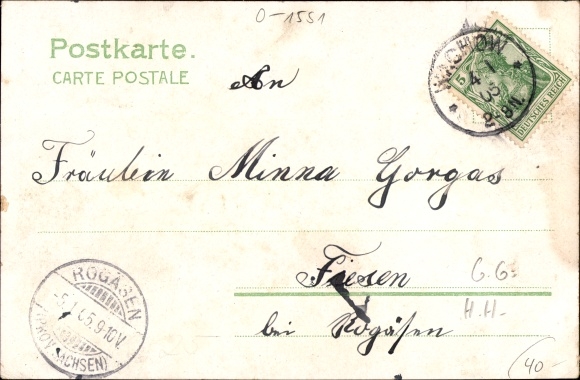 O-1551
Postkarte.
CARTE POSTALE
An
WACHOW
4 1
05
2-3N.
5
DEUTSCHES REICH
Fräulein Minna Gorgas
Fiesen
bei Rogäsen
G.G.
H.H-
40-
ROGÄSEN
5.1.05.9-10V.
SACHSEN)